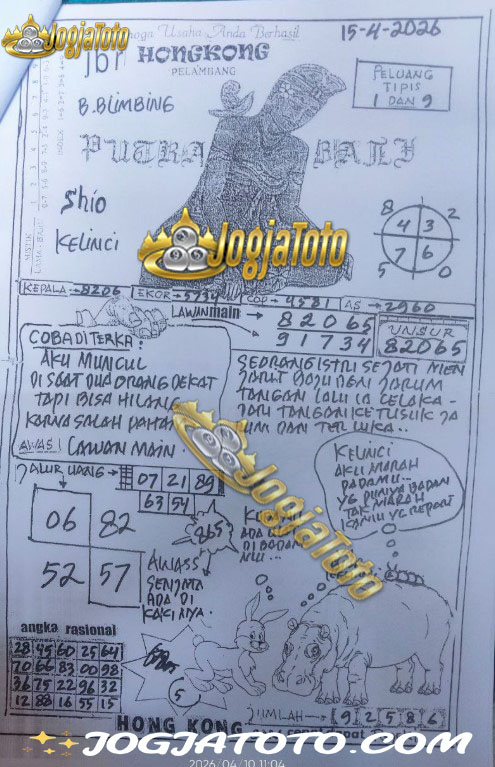 Semoga Usaha Anda Berhasil
15-4-2026
JogjaToto
jbr HONGKONG
PELAMBANG
PELUANG
TIPIS
1 DAN 9
B.BLIMBING
PUTRA BALI
Shio
KELINCI
8 2
4 3
7 6
5 0
JogjaToto
KEPALA→8206 EKOR→5734 COP→4581 AS→2960
LAWAN main → 8 2 0 6 5
9 1 7 3 4
UNSUR
82065
COBA DITERKA:
AKU MUNCUL
DI SAAT DUA ORANG DEKAT
TAPI BISA HILANG
KARNA SALAH PAHAM
AWAS! LAWAN MAIN.
SEORANG ISTRI SEJATI MEN
JARUT BAJU DGN JARUM
TANGAN LALU IA CELAKA -
JARI TANGAN KETUSUK JA
RUM DAN TERLUKA..
JALUR UANG → 07 21 89
63 54
KELINCI
AKU MARAH
PADAMU...
YG PUNYA BADAN
TAK MARAH
KAMU YG REPOT
06 82
52 57
865
ADA
DI BADAN
MU...
AWASS
SENJATA
ADA DI
KAKINYA.
JogjaToto
angka rasional
28 45 60 25 64
70 66 83 00 98
36 75 22 96 32
12 88 16 55 15
5
HONG KONG
JUMLAH → 9 2 5 8 6
JOGJATOTO.COM
2026/04/10 11:04